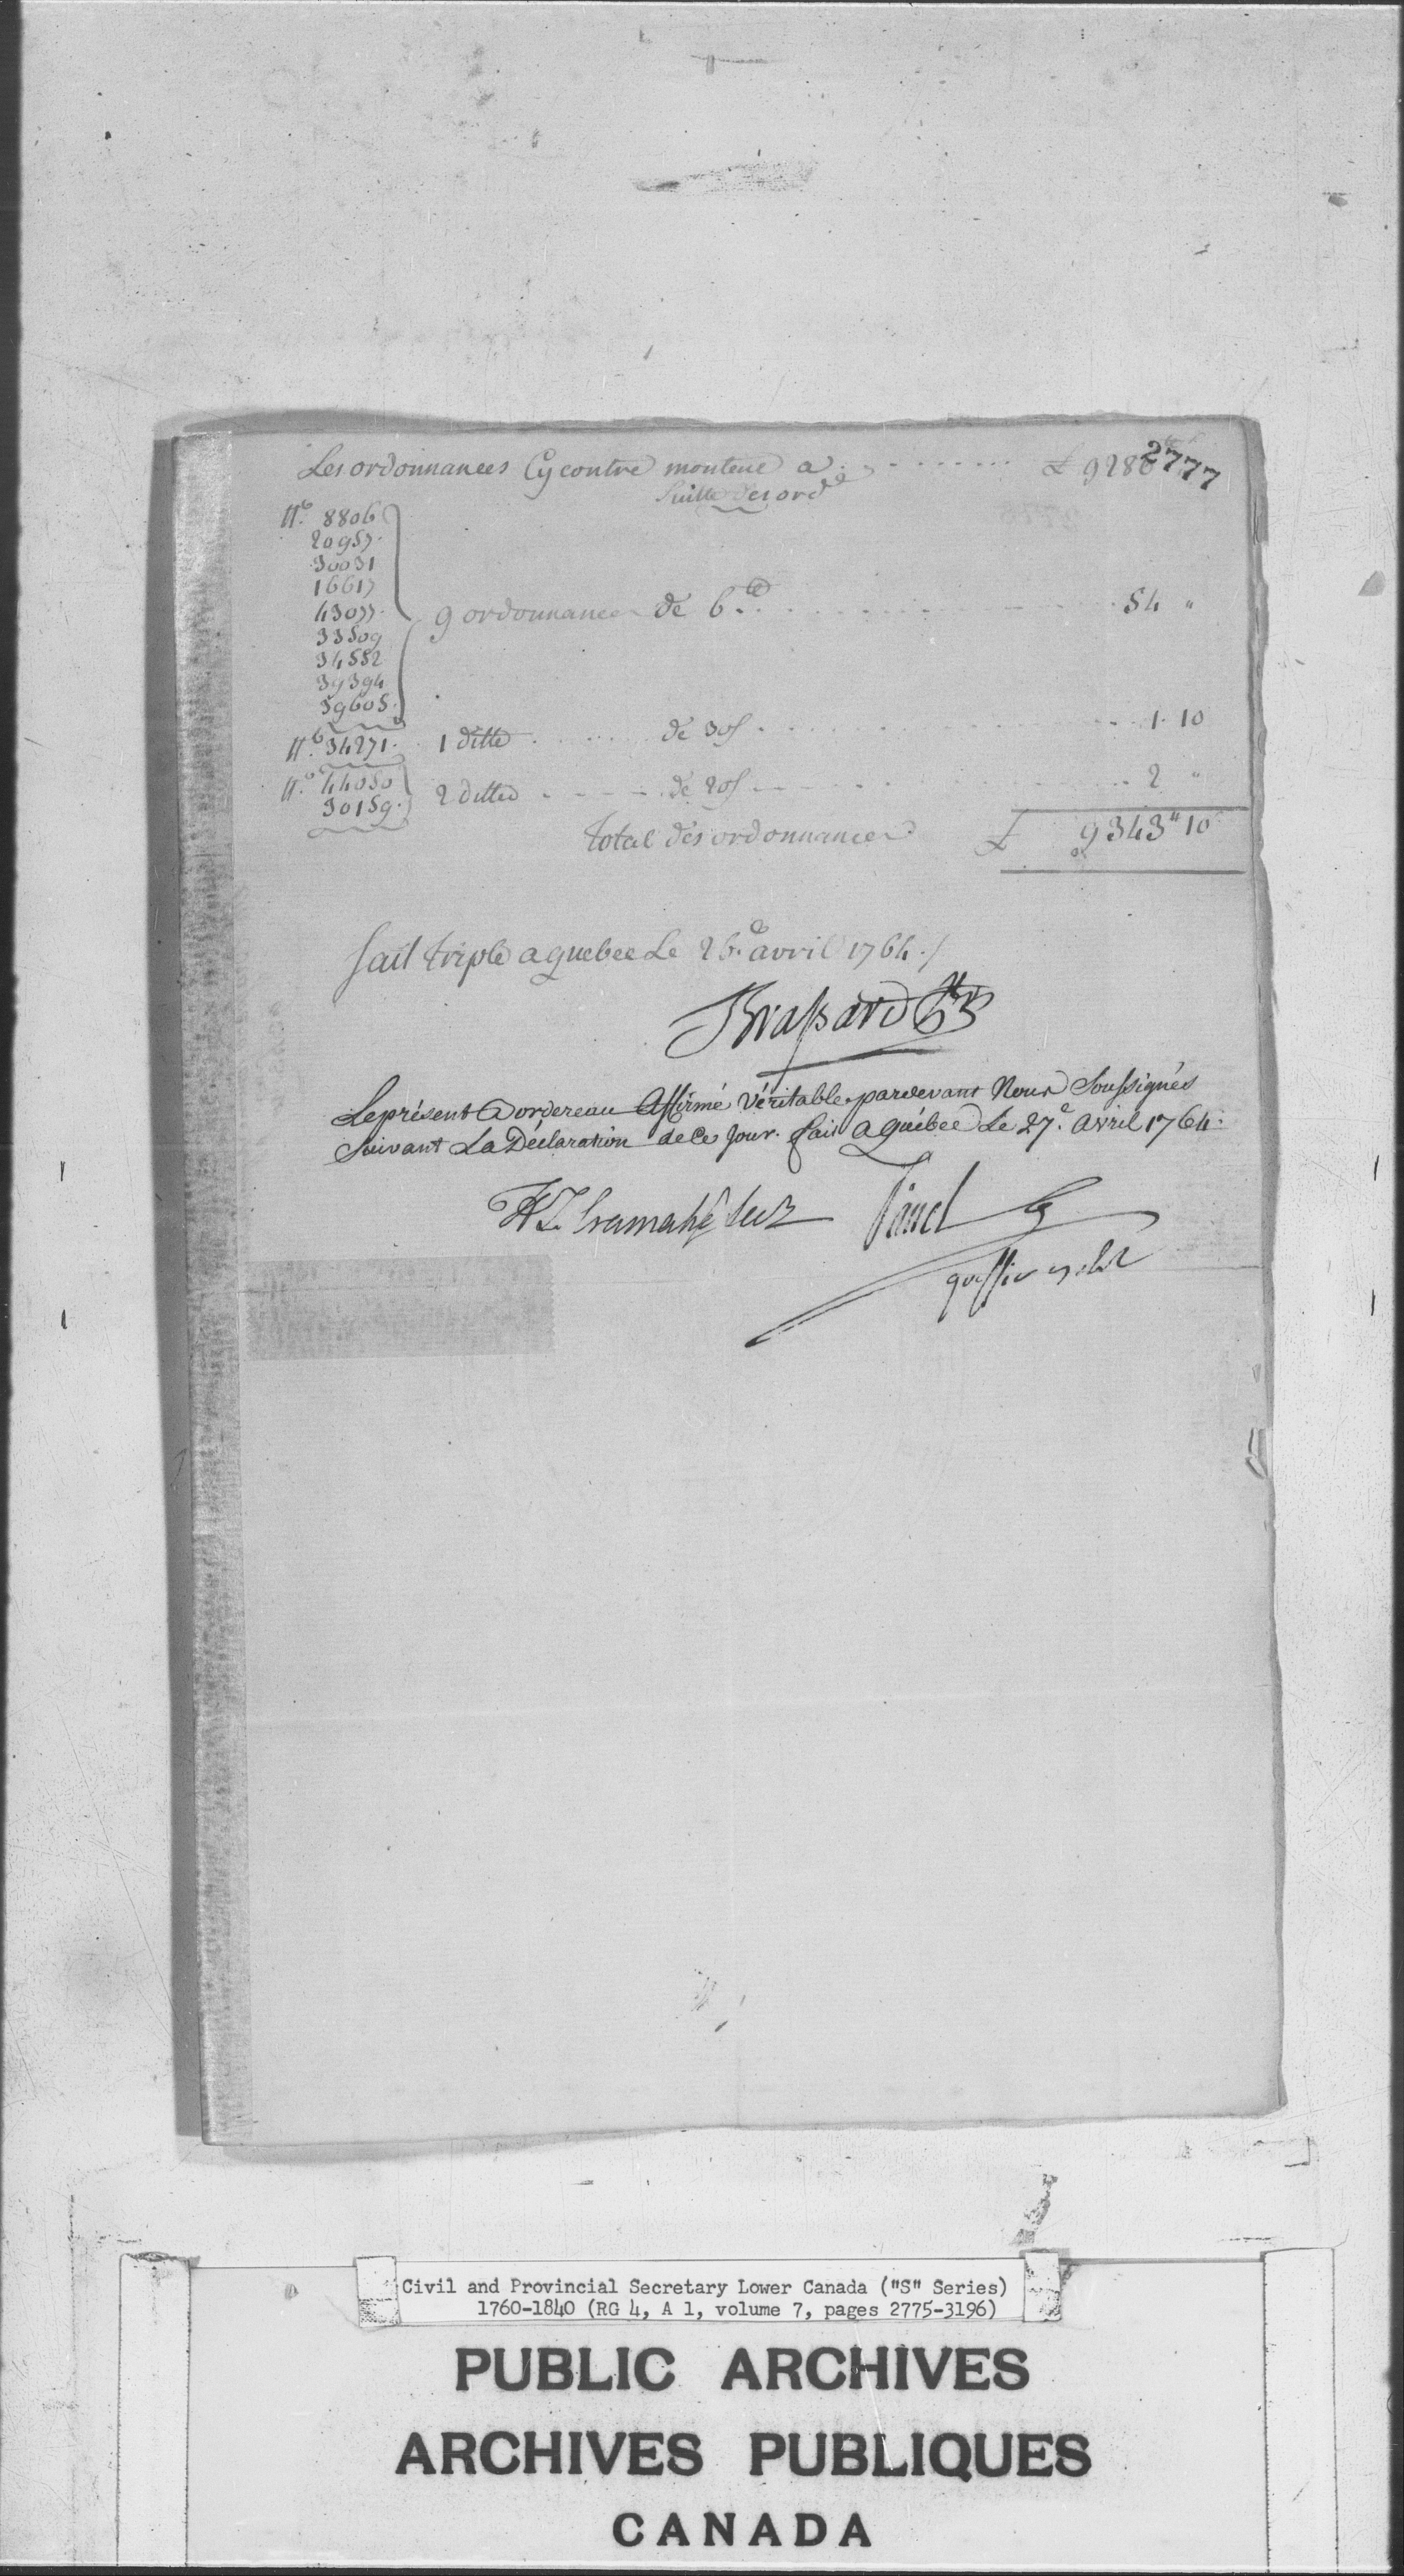 2777
Les ordonnances Cycontre montene a . . . . . . . . ₤ 9286
Suitte des ord.
N.o 8806
20957.
30031
16617
43077.
9 ordonnances de 6.tt . . . . . . . 54 "
33509
34552
39394
39605.
N.o 34271. 1 ditto . . . . . de 30s . . . . . . . 1. 10
N.o 44050
30159. 2 dittes - - - - de 20s - - - . . . . . 2 "
Total des ordonnances ₤ 9343" 10
fait triple a quebec Le 26.e avril 1764./
Brassard
Le présent Bordereau Affirmé Véritable pardevant Nous Soussignés
Suivant La Déclaration de Ce Jour. fait a Québec Le 27.e Avril 1764.
H T Cramahé Secr Panet
greffier
Civil and Provincial Secretary Lower Canada ("S" Series)
1760-1840 (RG 4, A 1, volume 7, pages 2775-3196)
PUBLIC ARCHIVES
ARCHIVES PUBLIQUES
CANADA